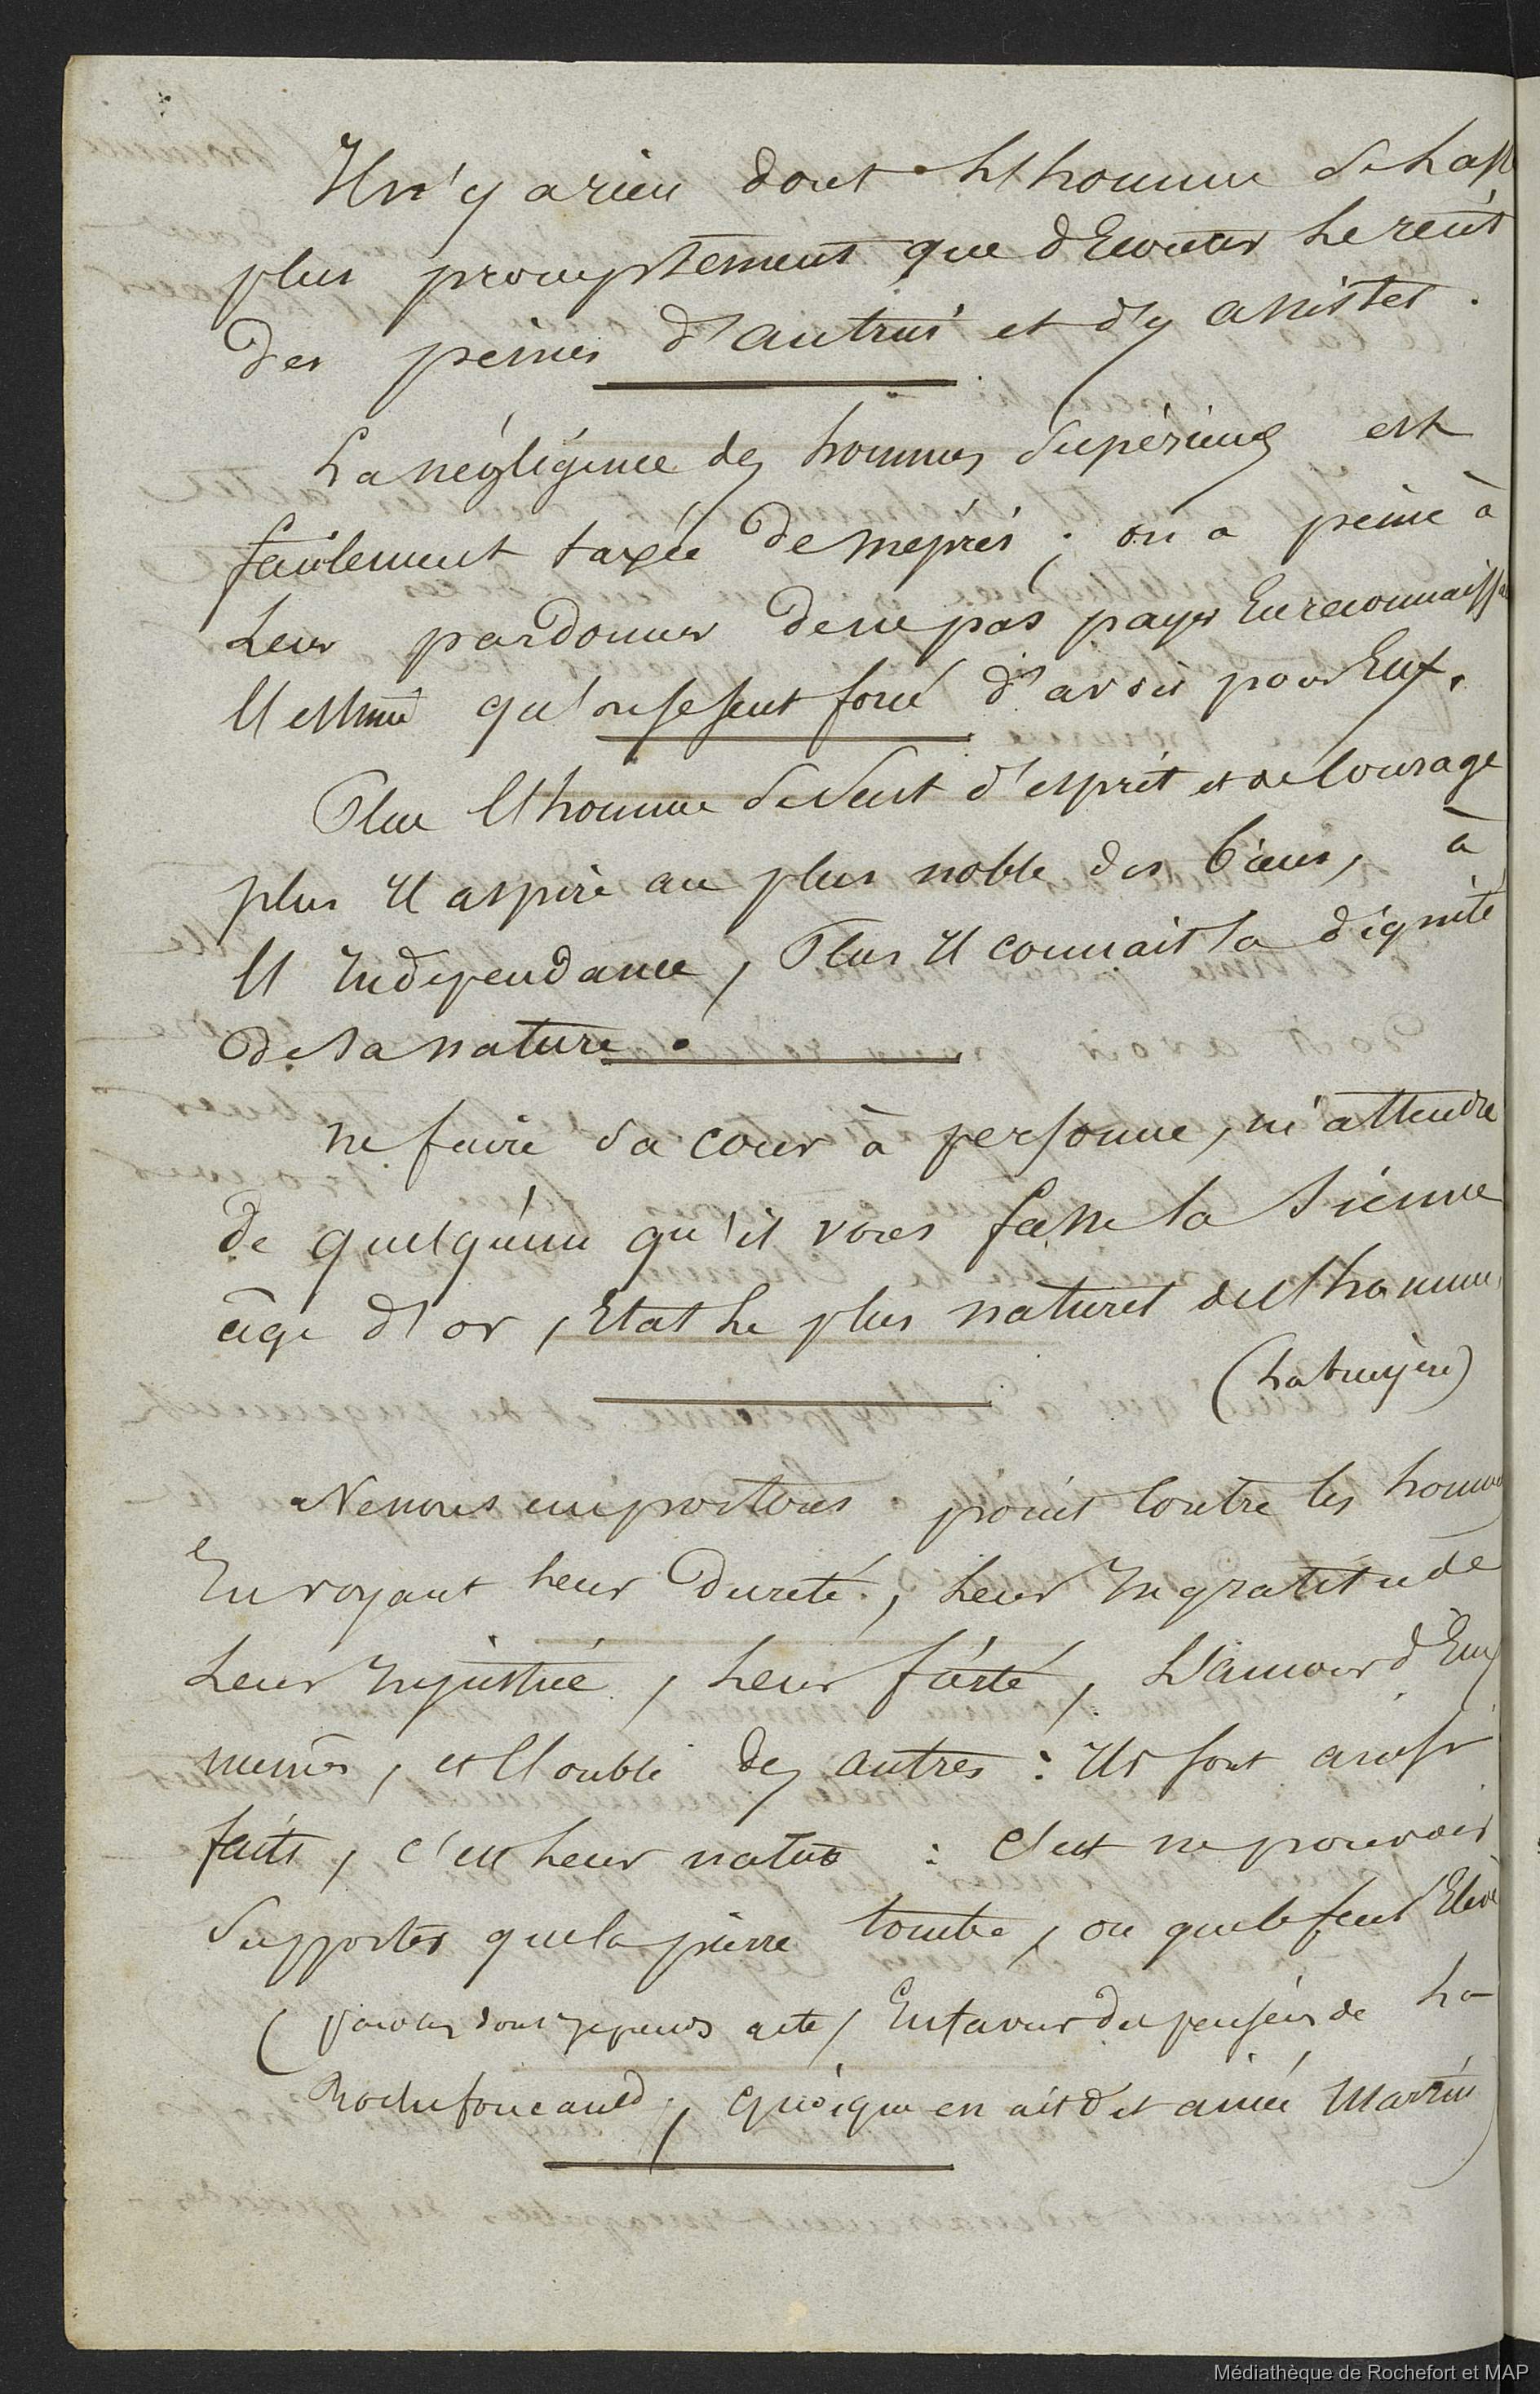 Il n'y a rien dont L'homme se Lasse
plus promptement que d'Ecouter Le récit
des peines d'autrui et d'y assister.
La négligence des hommes supérieurs est
facilement taxée de mépris ; on a peine à
Leur pardonner de ne pas payer En reconnaissa
l'estime qu'on se sent forcé d'avoir pour Eux.
Plus l'homme se sent d'esprit et de Courage
plus Il aspire au plus noble des biens, à
l'Indépendance, Plus Il connait la dignité
de sa nature.
ne faire sa cour à personne, ni attendre
de quelqu'un qu'il vous fasse la Sienne
âge d'or, Etat Le plus naturel de l'homme.
(Labruyère)
Ne nous emportons point Contre les hommes
En voyant Leur Dureté, Leur Ingratitude
Leur Injustice, Leur fierté, L'amour d'Eux
mêmes, et l'oubli des autres : Ils sont ainsi
faits, c'est Leur nature : C'est ne pouvoir
Supporter que la pierre tombe, ou que le feu s'Elève
(paroles dont je prends acte / En faveur des pensées de La
Rochefoucauld, quoique en ait dit aimé Martin)
Médiathèque de Rochefort et MAP